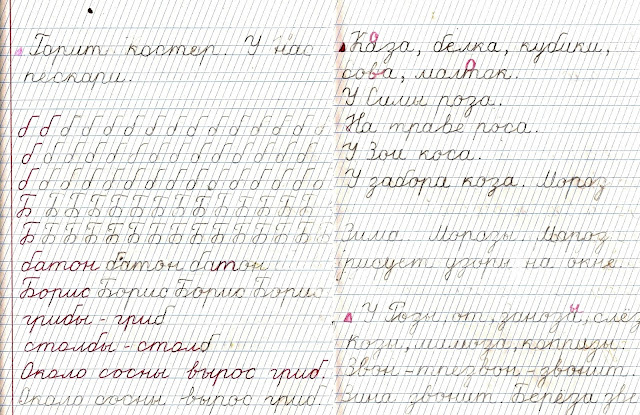 Горит костер. У нас
пескари.
б б б б б б б б б б б б б б б б
б б б б б б б б б б б б б б б б
б б б б б б б б б б б б б б б б
Б Б Б Б Б Б Б Б Б Б Б Б Б Б
Б Б Б Б Б Б Б Б Б Б Б Б Б Б
батон батон батон
Борис Борис Борис Борис
грибы - гриб
столбы - столб
Около сосны вырос гриб.
Около сосны вырос гриб.
Каза, белка, кубики,
сова, малток.
У Симы роза.
На траве роса.
У Зои коса.
У забора коза. Мороз
Зима Морозы. Мороз
рисуст узоры на окне.
У Розы, от, заноза, слёз
кози, мимоза, каппизы.
Звон - трезвон - звонит.
зина звонит. Берёза зв